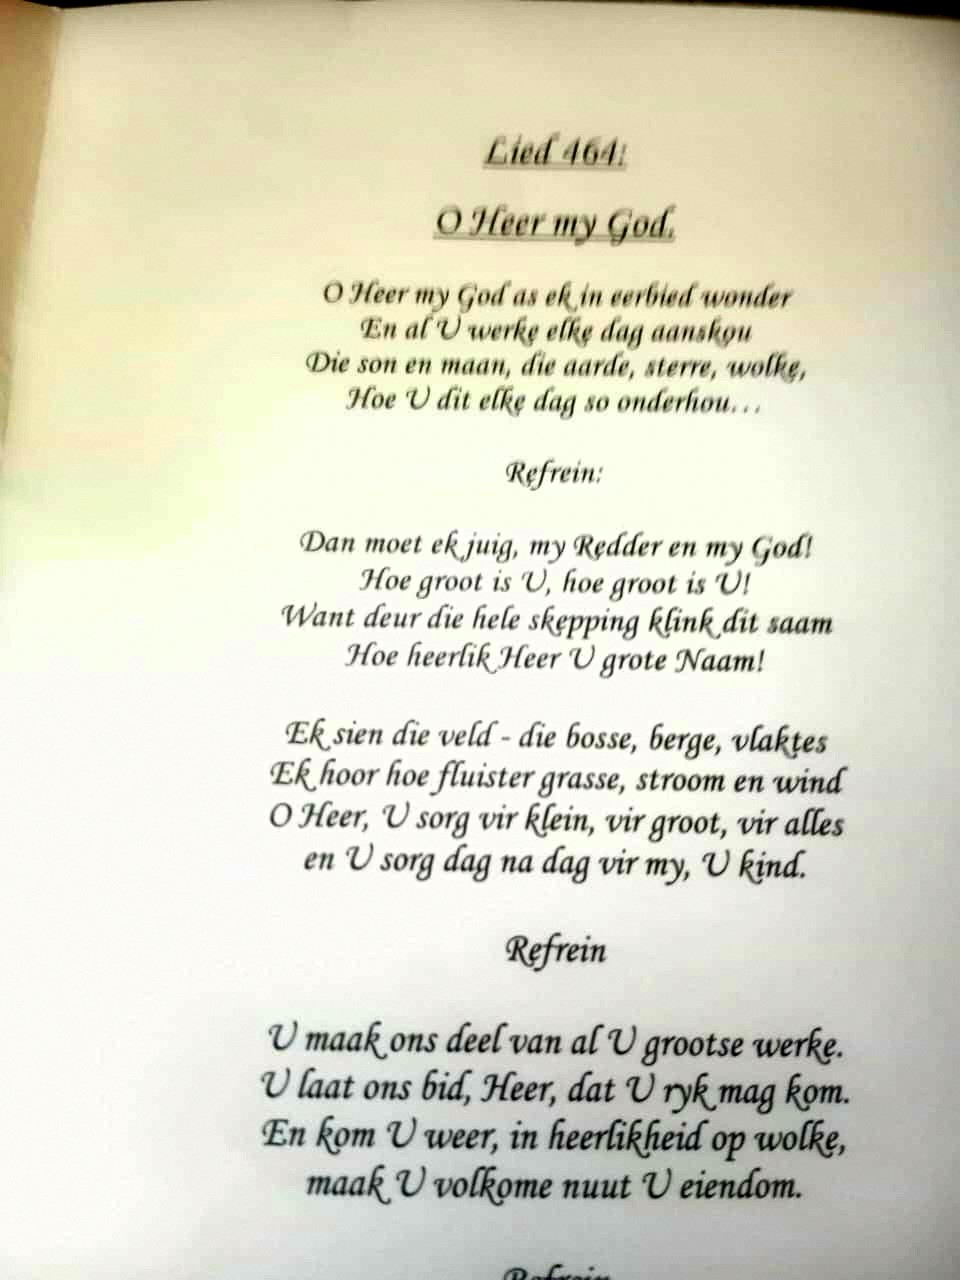 Lied 464:
O Heer my God.
O Heer my God as ek in eerbied wonder
En al U werke elke dag aanskou
Die son en maan, die aarde, sterre, wolke,
Hoe U dit elke dag so onderhou...
Refrein:
Dan moet ek juig, my Redder en my God!
Hoe groot is U, hoe groot is U!
Want deur die hele skepping klink dit saam
Hoe heerlik Heer U grote Naam!
Ek sien die veld - die bosse, berge, vlaktes
Ek hoor hoe fluister grasse, stroom en wind
O Heer, U sorg vir klein, vir groot, vir alles
en U sorg dag na dag vir my, U kind.
Refrein
U maak ons deel van al U grootse werke.
U laat ons bid, Heer, dat U ryk mag kom.
En kom U weer, in heerlikheid op wolke,
maak U volkome nuut U eiendom.
Refrein